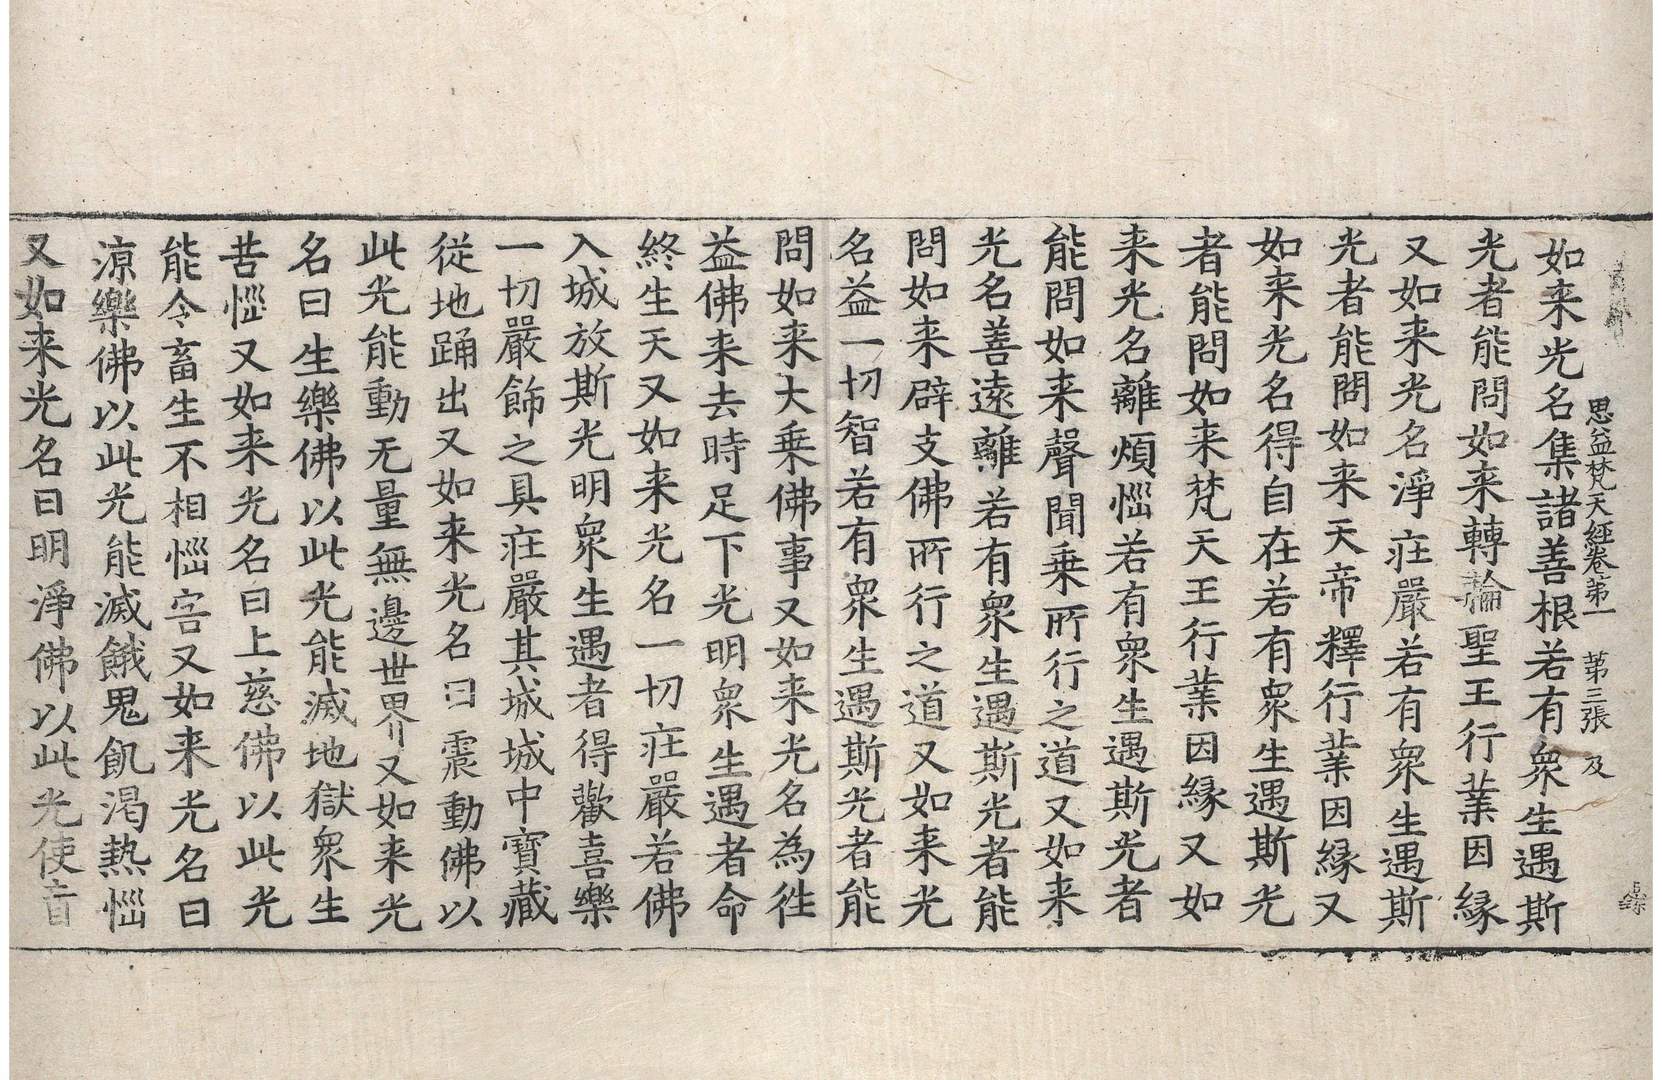 思益梵天經卷第一 第三張 及
如来光名集諸善根若有衆生遇斯
光者能問如来轉輪聖王行業因縁
又如来光名淨莊嚴若有衆生遇斯
光者能問如来天帝釋行業因縁又
如来光名得自在若有衆生遇斯光
者能問如来梵天王行業因縁又如
来光名離煩惱若有衆生遇斯光者
能問如来聲聞乗所行之道又如来
光名善遠離若有衆生遇斯光者能
問如来辟支佛所行之道又如来光
名益一切智若有衆生遇斯光者能
問如来大乗佛事又如来光名為徃
益佛来去時足下光明衆生遇者命
終生天又如来光名一切莊嚴若佛
入城放斯光明衆生遇者得歡喜樂
一切嚴飾之具莊嚴其城城中寶藏
從地踊出又如来光名曰震動佛以
此光能動无量無邊世界又如来光
名曰生樂佛以此光能滅地獄衆生
苦惱又如来光名曰上慈佛以此光
能令畜生不相惱害又如来光名曰
涼樂佛以此光能滅餓鬼飢渇熱惱
又如来光名曰明淨佛以此光使盲